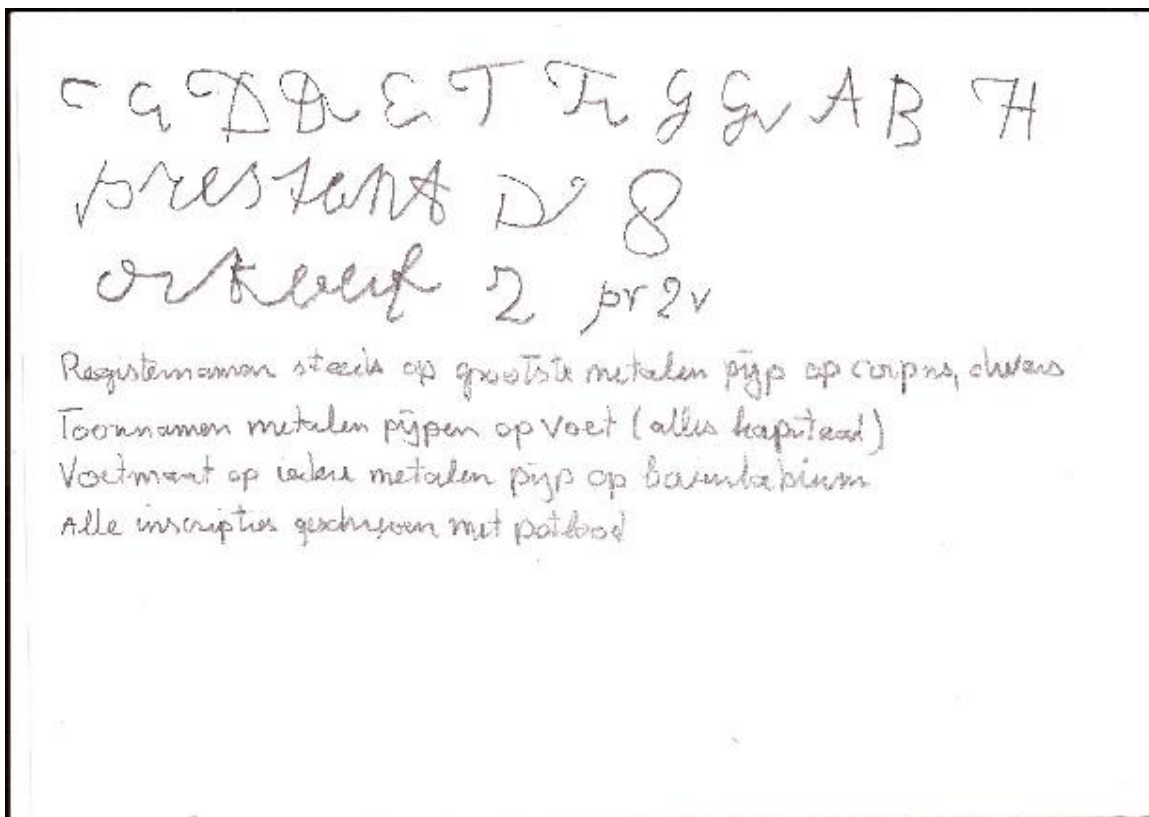 C G D Dv E T Tv G Gv A B H
prestant D 8
octaaf 2 pr 2v
Registernamen steeds op grootste metalen pijp op corpus, dwars
Toonnamen metalen pijpen op voet (alles kapitaal)
Voetmaat op iedere metalen pijp op bovenlabium
Alle inscripties geschreven met potlood